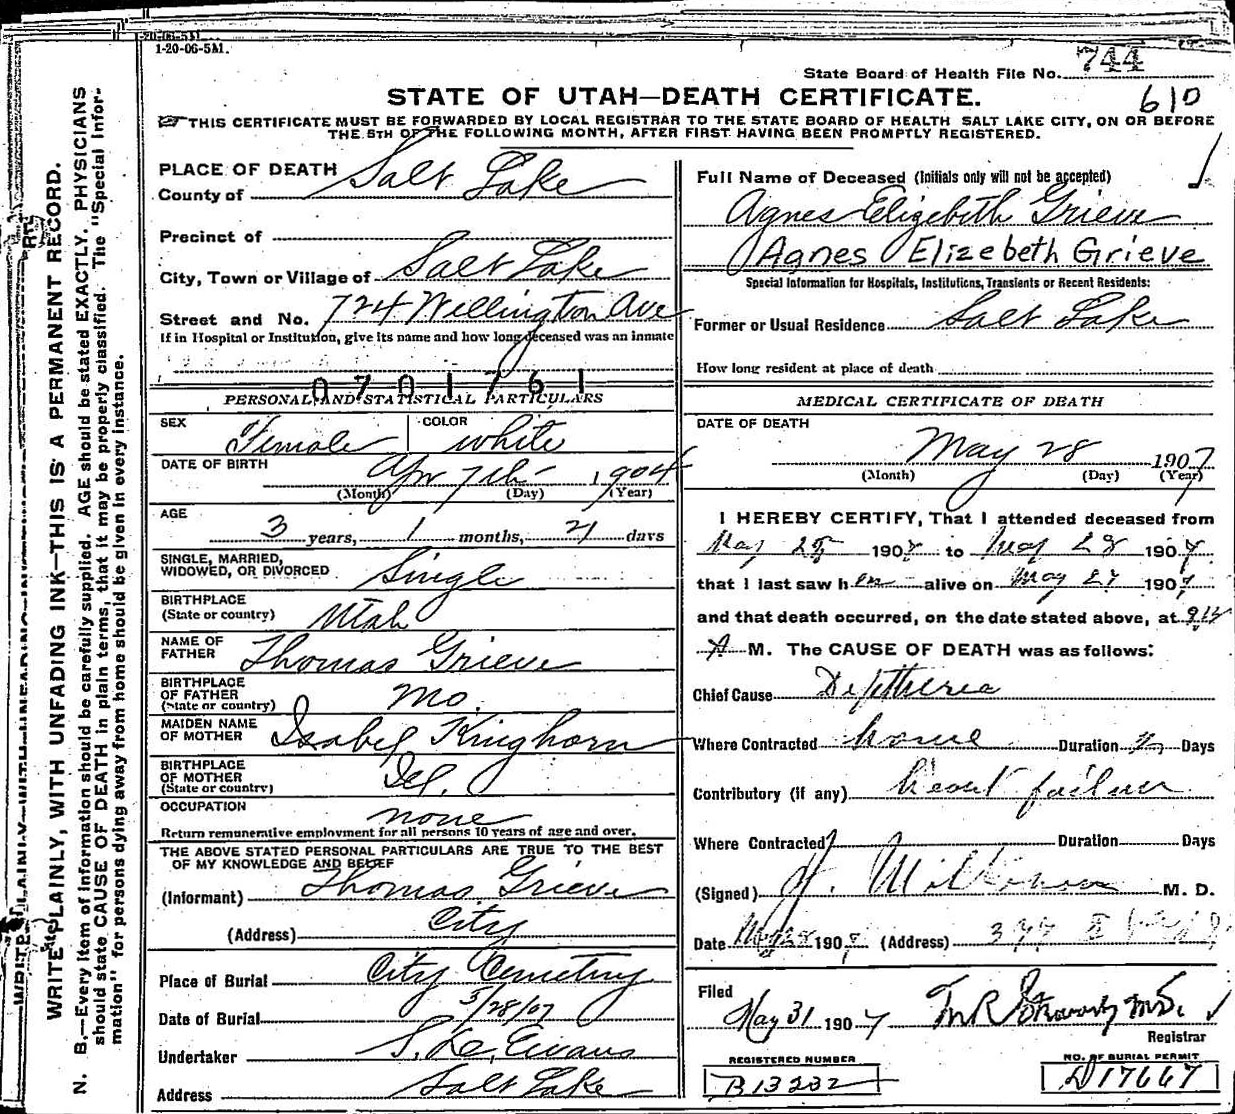 1-20-06-5M.
State Board of Health File No. 744
STATE OF UTAH—DEATH CERTIFICATE. 610
THIS CERTIFICATE MUST BE FORWARDED BY LOCAL REGISTRAR TO THE STATE BOARD OF HEALTH SALT LAKE CITY, ON OR BEFORE
THE 5TH OF THE FOLLOWING MONTH, AFTER FIRST HAVING BEEN PROMPTLY REGISTERED.
WRITE PLAINLY, WITH UNFADING INK—THIS IS A PERMANENT RECORD.
N. B.—Every item of information should be carefully supplied. AGE should be stated EXACTLY. PHYSICIANS
should state CAUSE OF DEATH in plain terms, that it may be properly classified. The "Special Infor-
mation" for persons dying away from home should be given in every instance.
PLACE OF DEATH
County of Salt Lake
Precinct of
City, Town or Village of Salt Lake
Street and No. 724 Wellington Ave
If in Hospital or Institution, give its name and how long deceased was an inmate
0701761
PERSONAL AND STATISTICAL PARTICULARS
SEX Female COLOR white
DATE OF BIRTH Apr 7th 1904
(Month) (Day) (Year)
AGE
3 years, 1 months, 21 days
SINGLE, MARRIED,
WIDOWED, OR DIVORCED Single
BIRTHPLACE
(State or country) Utah
NAME OF
FATHER Thomas Grieve
BIRTHPLACE
OF FATHER
(State or country) Mo.
MAIDEN NAME
OF MOTHER Isabel Kinghorn
BIRTHPLACE
OF MOTHER
(State or country)
OCCUPATION none
Return remunerative employment for all persons 10 years of age and over.
THE ABOVE STATED PERSONAL PARTICULARS ARE TRUE TO THE BEST
OF MY KNOWLEDGE AND BELIEF
(Informant) Thomas Grieve
(Address) City
Place of Burial City Cemetery
Date of Burial 5/28/07
Undertaker S. D. Evans
Address Salt Lake
Full Name of Deceased (Initials only will not be accepted)
Agnes Elizebeth Grieve
Agnes Elizebeth Grieve
Special Information for Hospitals, Institutions, Transients or Recent Residents:
Former or Usual Residence Salt Lake
How long resident at place of death
MEDICAL CERTIFICATE OF DEATH
DATE OF DEATH
May 28 1907
(Month) (Day) (Year)
I HEREBY CERTIFY, That I attended deceased from
May 25 1907 to May 28 1907
that I last saw her alive on May 27 1907
and that death occurred, on the date stated above, at
A M. The CAUSE OF DEATH was as follows:
Chief Cause Diphtheria
Where Contracted home Duration Days
Contributory (if any) heart failure
Where Contracted Duration Days
(Signed) M. D.
Date May 28 1907 (Address)
Filed
May 31 1907
Registrar
REGISTERED NUMBER
B13232
NO. OF BURIAL PERMIT
D17667